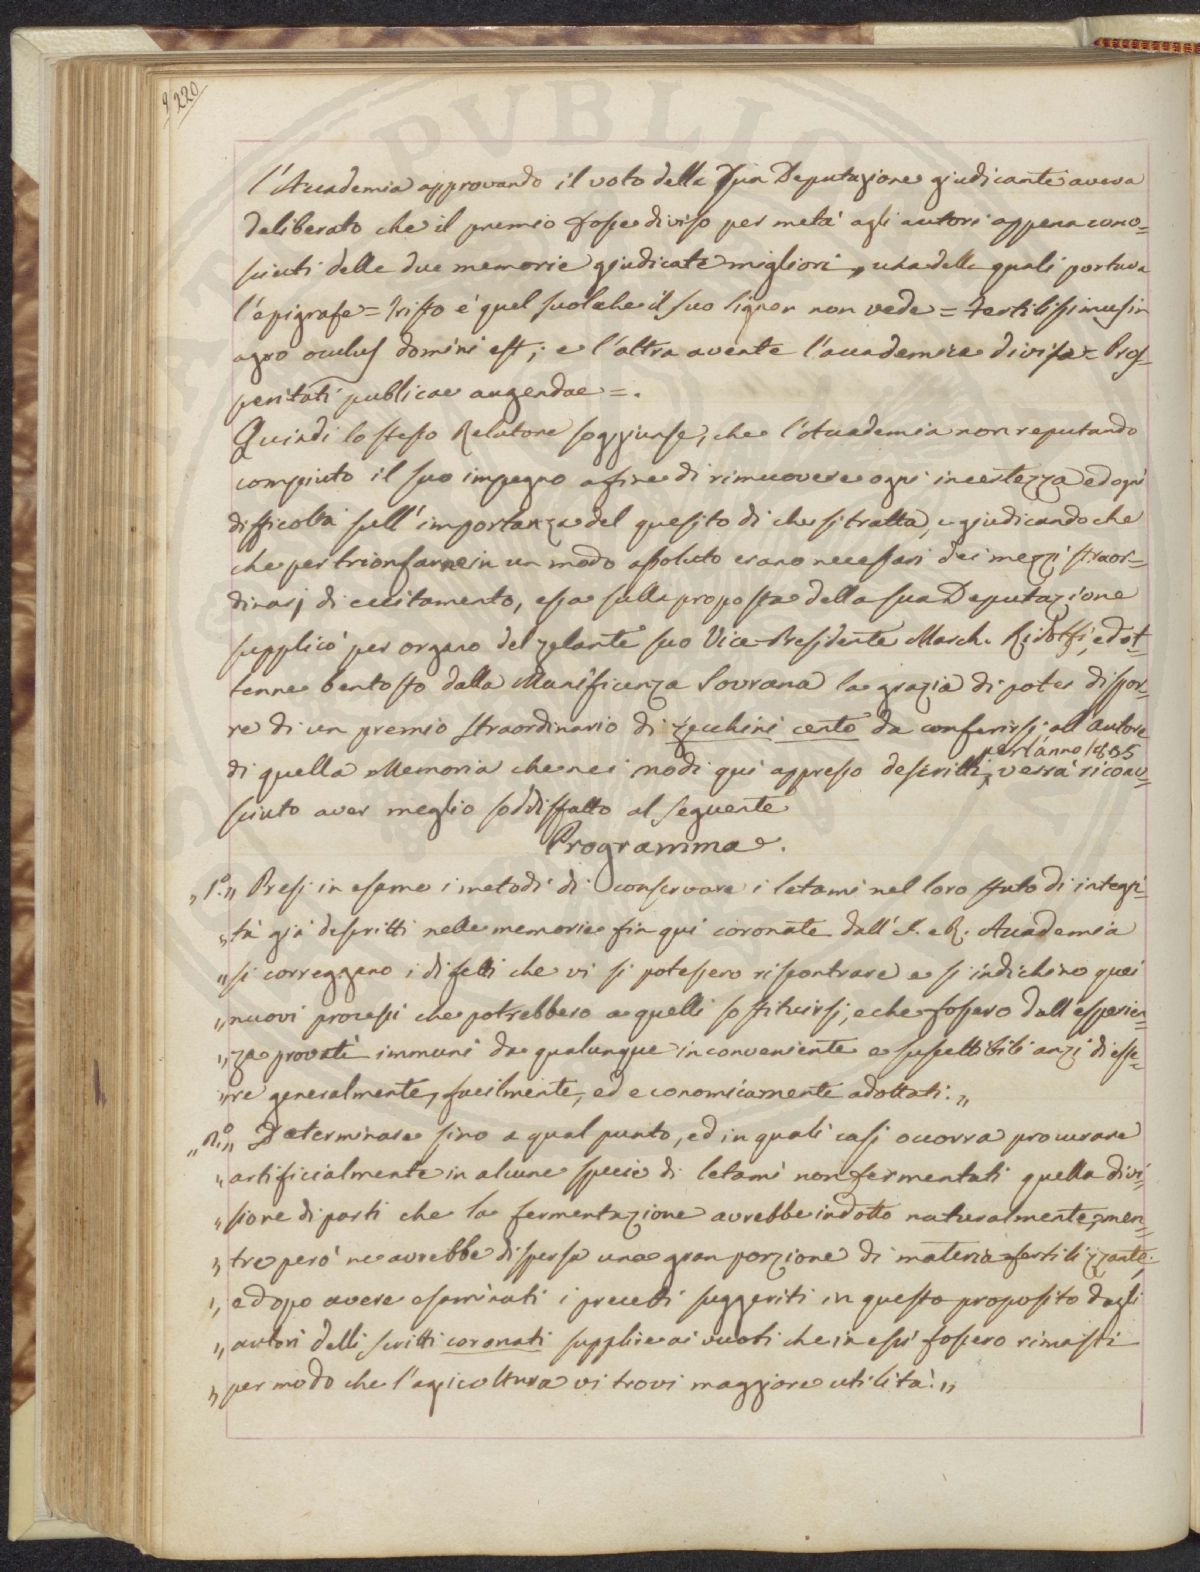 220
l'Accademia approvando il voto della Sua Deputazione giudicante aveva
deliberato che il premio fosse diviso per metà agli autori appena cono=
sciuti delle due memorie giudicate migliori, una delle quali portava
l'epigrafe = Tristo è quel suol che il suo signor non vede = Fertilissimus in
agro oculus domini est; e l'altra avente l'accademica divisa = Pros=
peritati publicae augendae =.
Quindi lo stesso Relatore soggiunse, che l'Accademia non reputando
compiuto il suo impegno a fine di rimuovere ogni incertezza ed ogni
difficoltà sull'importanza del quesito di che si tratta, e giudicando che
che per trionfarne in un modo assoluto erano necessari dei mezzi straor=
dinarj di eccitamento, essa sulla proposta della sua Deputazione
supplicò per organo del zelante suo Vice-Presidente March. Ridolfi, ed ot=
tenne bentosto dalla Munificenza Sovrana la grazia di poter dispor=
re di un premio straordinario di zecchini cento da conferirsi all'autore
per l'anno 1835
di quella Memoria che nei modi quì appresso descritti, verrà ricono=
sciuto aver meglio soddisfatto al seguente
Programma.
„1.° „ Presi in esame i metodi di conservare i letami nel loro stato di integri=
„ tà già descritti nelle memorie fin quì coronate dall'I. e R. Accademia
„ si correggano i difetti che vi si potessero riscontrare e si indichino quei
„ nuovi processi che potrebbero a quelli sostituirsi, e che fossero dall'esperien=
„ za provati immuni da qualunque inconveniente e suscettibili anzi di esse=
„ re generalmente, facilmente, ed economicamente adottati. „
„2.° „ Determinare sino a qual punto, ed in quali casi occorra procurare
„ artificialmente in alcune specie di letami non fermentati quella divi=
„ sione di parti che la fermentazione avrebbe indotto naturalmente, men=
„ tre però ne avrebbe dispersa una gran porzione di materia fertilizzante,
„ e dopo avere esaminati i precetti suggeriti in questo proposito dagli
„ autori delli scritti coronati supplire ai vuoti che in essi fossero rimasti
„ per modo che l'agicoltura vi trovi maggiore utilità. „